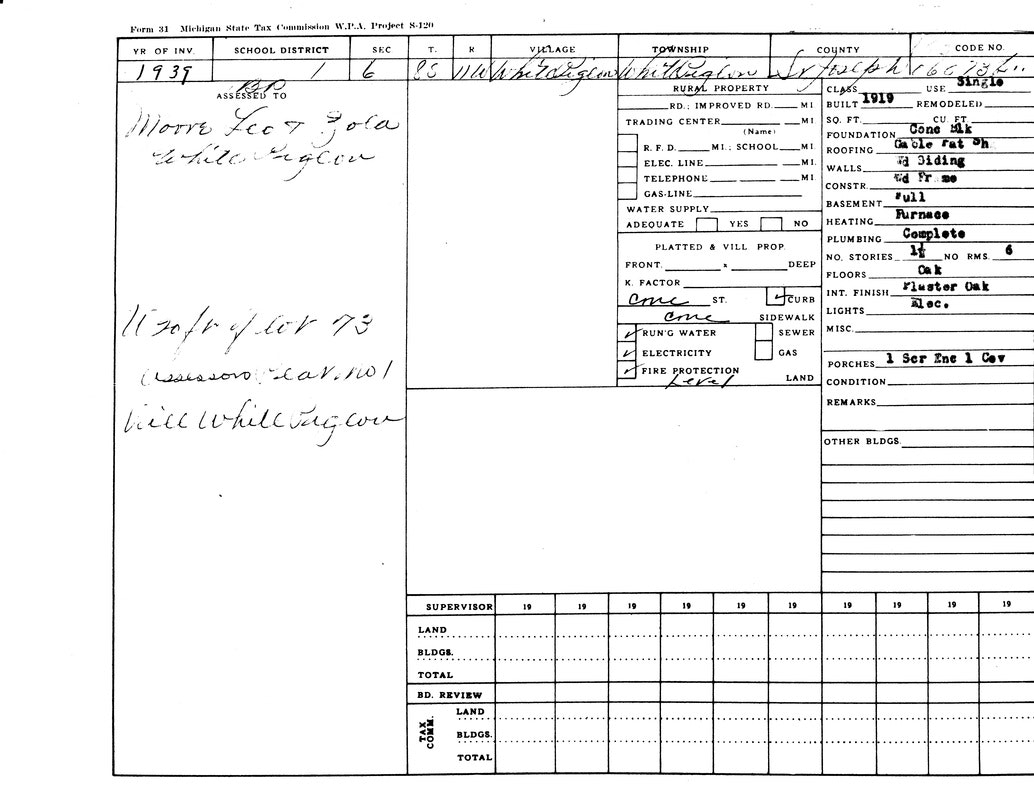 Form 31 Michigan State Tax Commission W.P.A. Project S-120
YR OF INV. SCHOOL DISTRICT SEC. T. R VILLAGE TOWNSHIP COUNTY CODE NO.
1939 1 6 8S 11W White Pigeon White Pigeon St Joseph
ASSESSED TO
Moore Leo & Zola
White Pigeon
lot 73
Assessors Plat no 1
Vill White Pigeon
RURAL PROPERTY
RD.; IMPROVED RD. MI.
TRADING CENTER MI.
(Name)
R. F. D. MI.; SCHOOL MI.
ELEC. LINE MI.
TELEPHONE MI.
GAS-LINE
WATER SUPPLY
ADEQUATE YES NO
PLATTED & VILL PROP.
FRONT. x DEEP
K. FACTOR
Conc ST. ✓ CURB
Conc SIDEWALK
✓ RUN'G WATER SEWER
✓ ELECTRICITY GAS
✓ FIRE PROTECTION
Level LAND
CLASS USE Single
BUILT 1919 REMODELED
SQ. FT. CU. FT.
FOUNDATION Conc Blk
ROOFING Gable Pat Sh
WALLS Wd Siding
CONSTR. Wd Frame
BASEMENT Full
HEATING Furnace
PLUMBING Complete
NO. STORIES 1½ NO RMS. 6
FLOORS Oak
INT. FINISH Plaster Oak
LIGHTS Elec.
MISC.
PORCHES 1 Scr Enc 1 Cov
CONDITION
REMARKS
OTHER BLDGS.
SUPERVISOR 19 19 19 19 19 19 19 19 19 19
LAND
BLDGS.
TOTAL
BD. REVIEW
TAX COMM.
LAND
BLDGS.
TOTAL